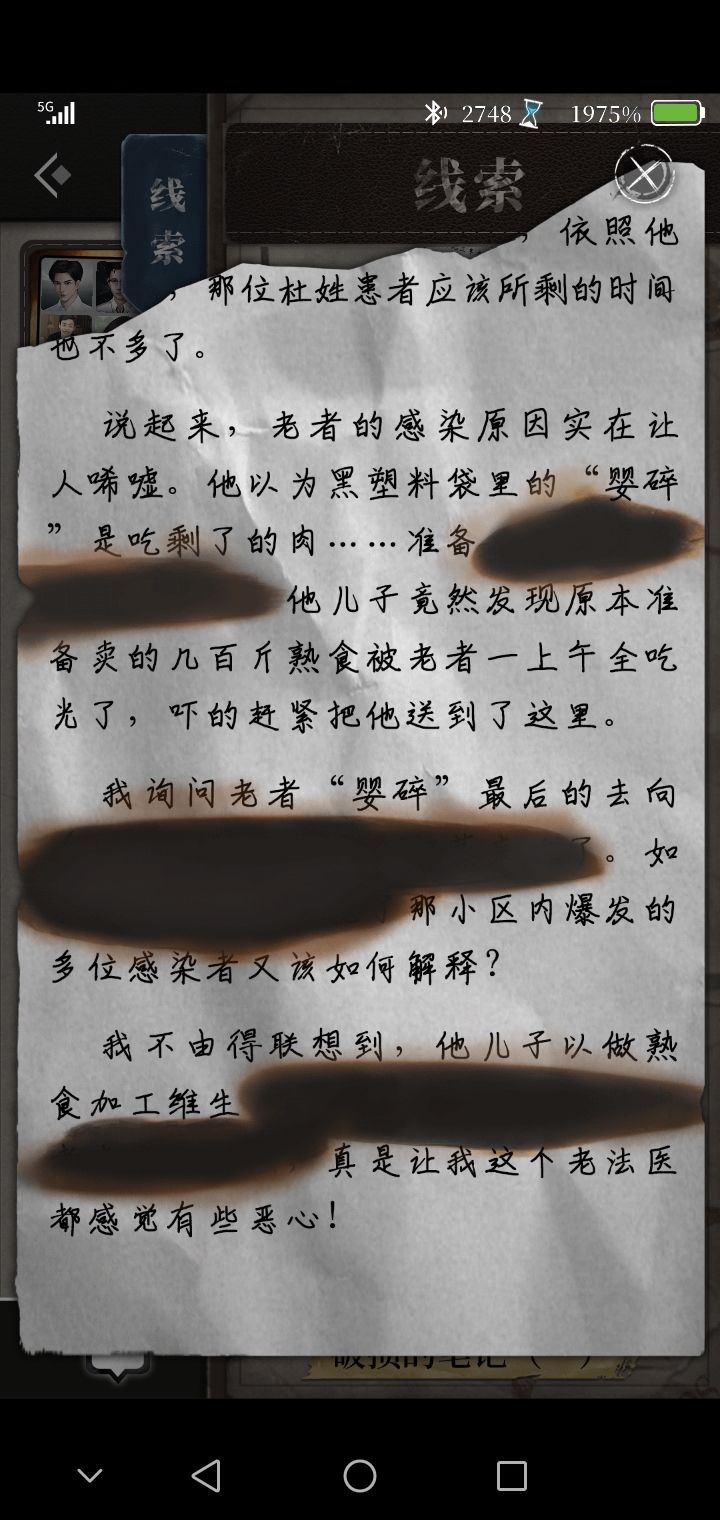 5G 2748 1975%
线索
线索
，依照他
，那位杜姓患者应该所剩的时间
也不多了。
说起来，老者的感染原因实在让
人唏嘘。他以为黑塑料袋里的“婴碎
”是吃剩了的肉……准备
他儿子竟然发现原本准
备卖的几百斤熟食被老者一上午全吃
光了，吓的赶紧把他送到了这里。
我询问老者“婴碎”最后的去向
了。如
了那小区内爆发的
多位感染者又该如何解释？
我不由得联想到，他儿子以做熟
食加工维生
，真是让我这个老法医
都感觉有些恶心！